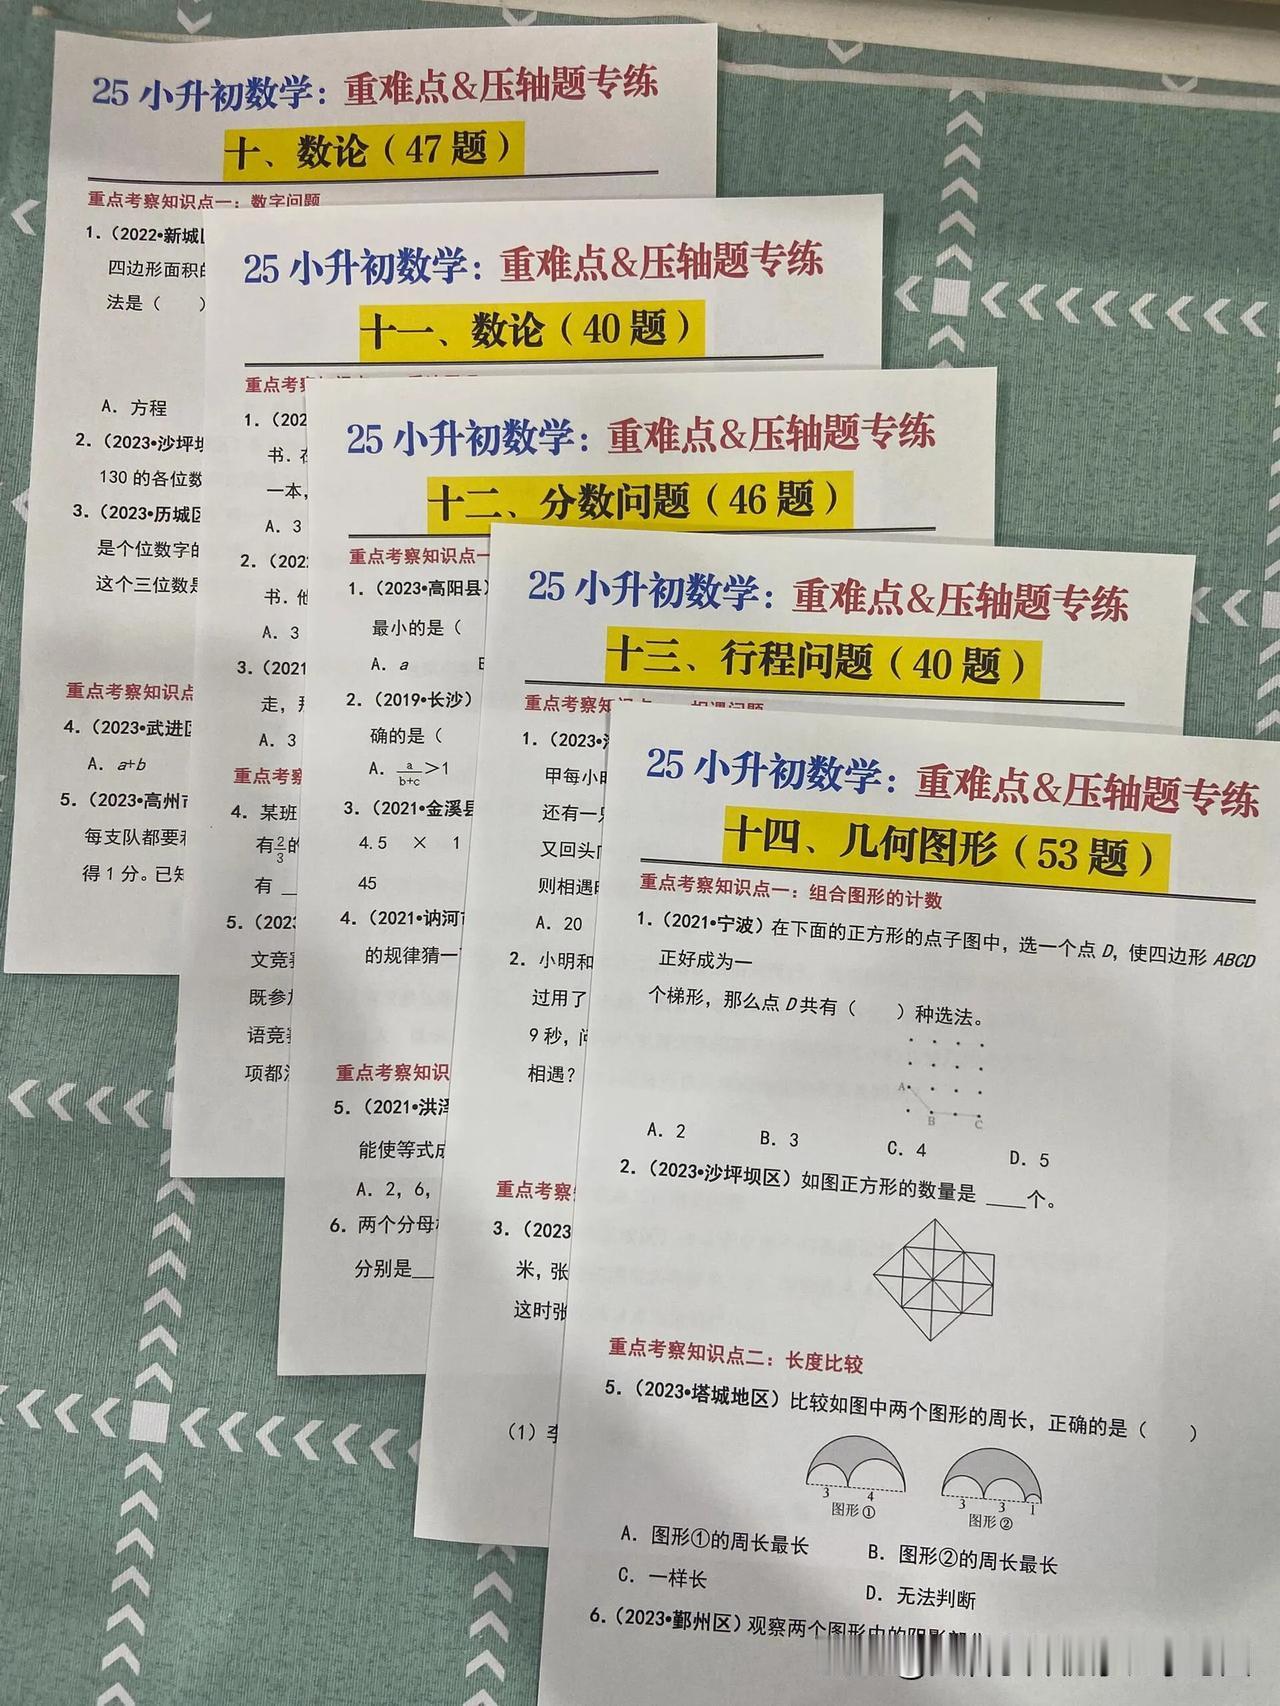 25 小升初数学：重难点&压轴题专练
十、数论（47 题）
重点考察知识点一：数字问题
1.（2022•新城
四边形面积
法是（　　）
A. 方程
2.（2023•沙坪坝
130 的各位数
3.（2023•历城区
是个位数字的
这个三位数是
重点考察知识点
4.（2023•武进区
A. a+b
5.（2023•高州市
每支队都要和
得 1 分。已知
25 小升初数学：重难点&压轴题专练
十一、数论（40 题）
重点考察
1.（202
书．在
一本，
A. 3
2.（202
书．他
A. 3
3.（2021
走，
A. 3
重点考察
4. 某班
有2/3的
有
5.（2023
文竞赛
既参加
语竞赛
项都
25 小升初数学：重难点&压轴题专练
十二、分数问题（46 题）
重点考察知识点一
1.（2023•高阳县）
最小的是（
A. a
2.（2019•长沙）
确的是（
A. a/b+c>1
3.（2021•金溪县
4.5 × 1
45
4.（2021•讷河市
的规律猜一
重点考察知识
5.（2021•洪泽
能使等式成
A. 2, 6,
6. 两个分母
分别是__
25 小升初数学：重难点&压轴题专练
十三、行程问题（40 题）
重点考察知识点一：相遇问题
1.（2023•
甲每小时
还有一只
又回头向
则相遇时
A. 20
2. 小明和
过用了
9 秒，问
相遇？
重点考察
3.（2023
米，张
这时张
（1）李
25 小升初数学：重难点&压轴题专练
十四、几何图形（53 题）
重点考察知识点一：组合图形的计数
1.（2021•宁波）在下面的正方形的点子图中，选一个点 D，使四边形 ABCD
正好成为一
个梯形，那么点 D 共有（　　）种选法。
A
B C
A. 2 B. 3 C. 4 D. 5
2.（2023•沙坪坝区）如图正方形的数量是 ____个。
重点考察知识点二：长度比较
5.（2023•塔城地区）比较如图中两个图形的周长，正确的是（　　）
3 4 3 3 1
图形① 图形②
A. 图形①的周长最长 B. 图形②的周长最长
C. 一样长 D. 无法判断
6.（2023•鄞州区）观察两个图形中的阴影部